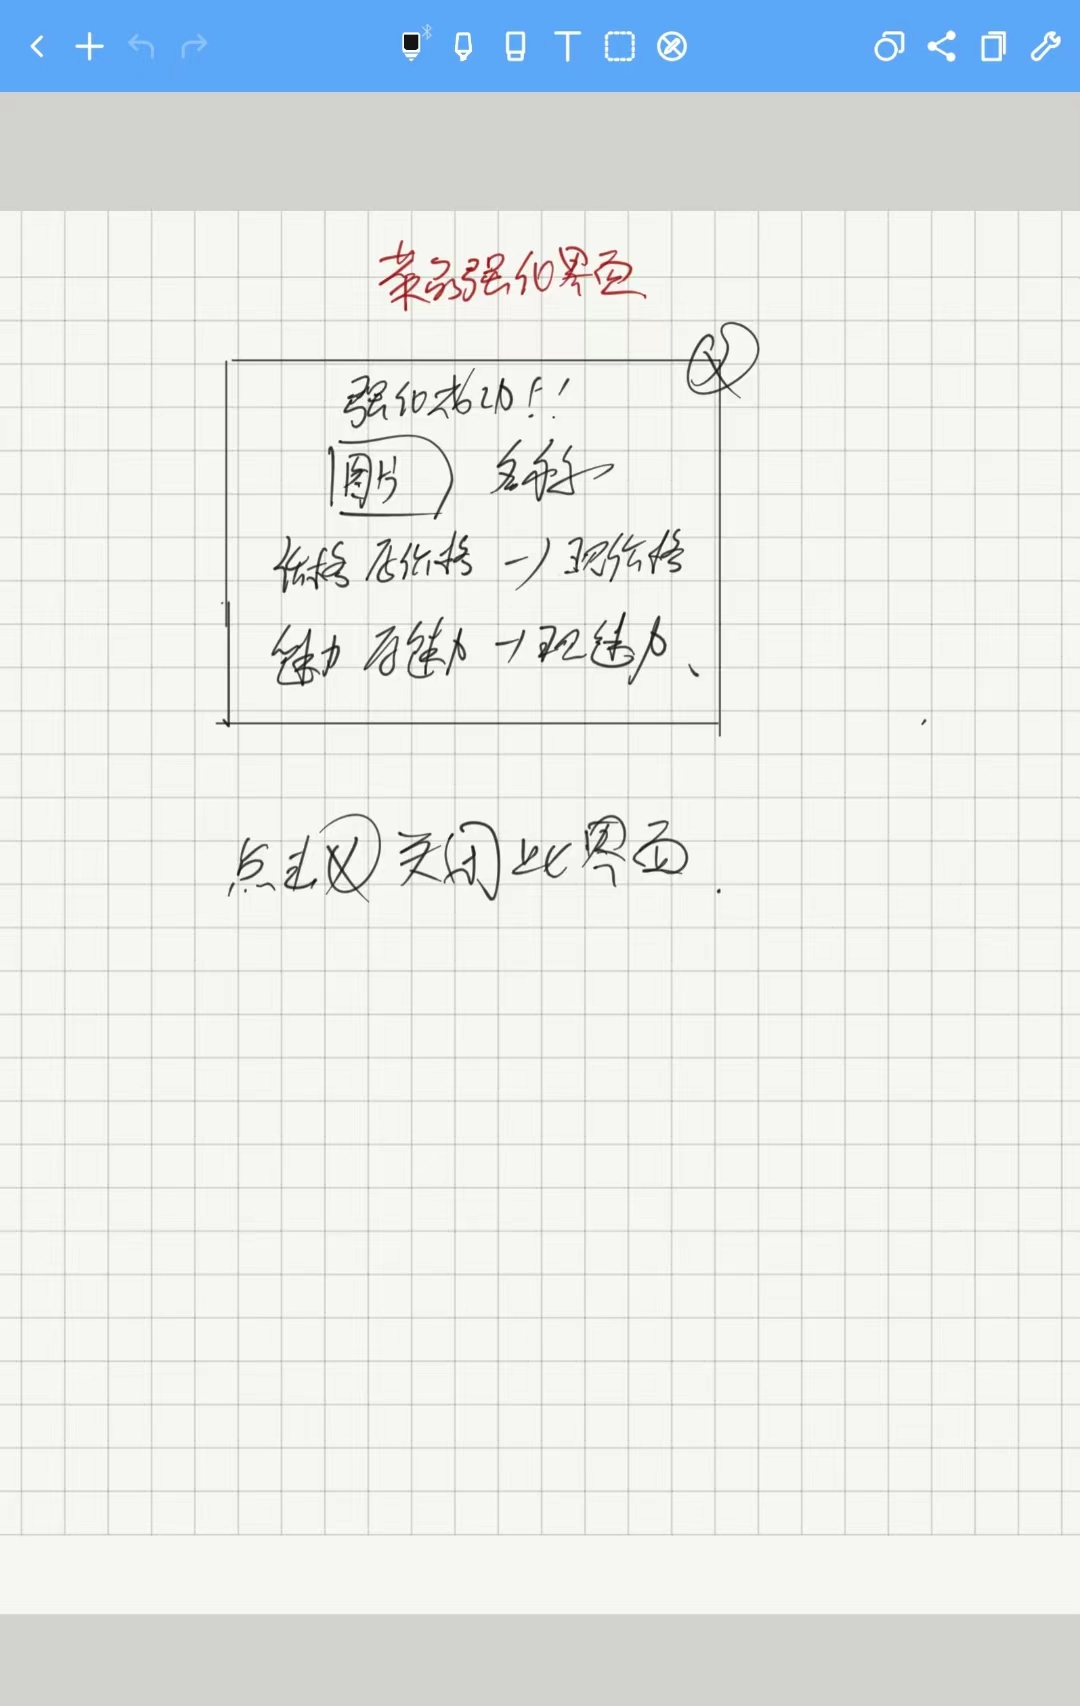 菜品强化界面
强化成功!!
图片 名称
价格 原价格 → 现价格
魅力 原魅力 → 现魅力、
点击Ⓧ关闭此界面.